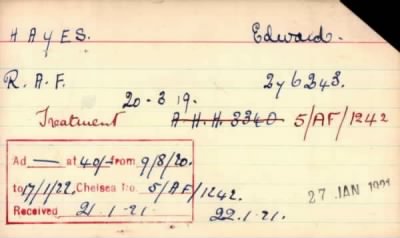 HAYES. Edward.
R.A.F. 276243.
20-3 19.
Treatment A.H.H. 3340 5/AF/1242
Ad — at 40/- from 9/8/20.
to 17/1/22. Chelsea No. 5/AF/1242.
Received 21.1-21. 22.1.21.
27 JAN 1921